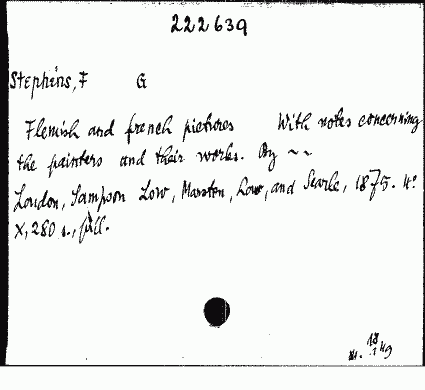 222639
Stephens, F G
Flemish and french pictures With notes concerning
the painters and their works. By ~~
London, Sampson Low, Marston, Low, and Searle, 1875. 4:o
X, 280 s., pill.
18
1 49